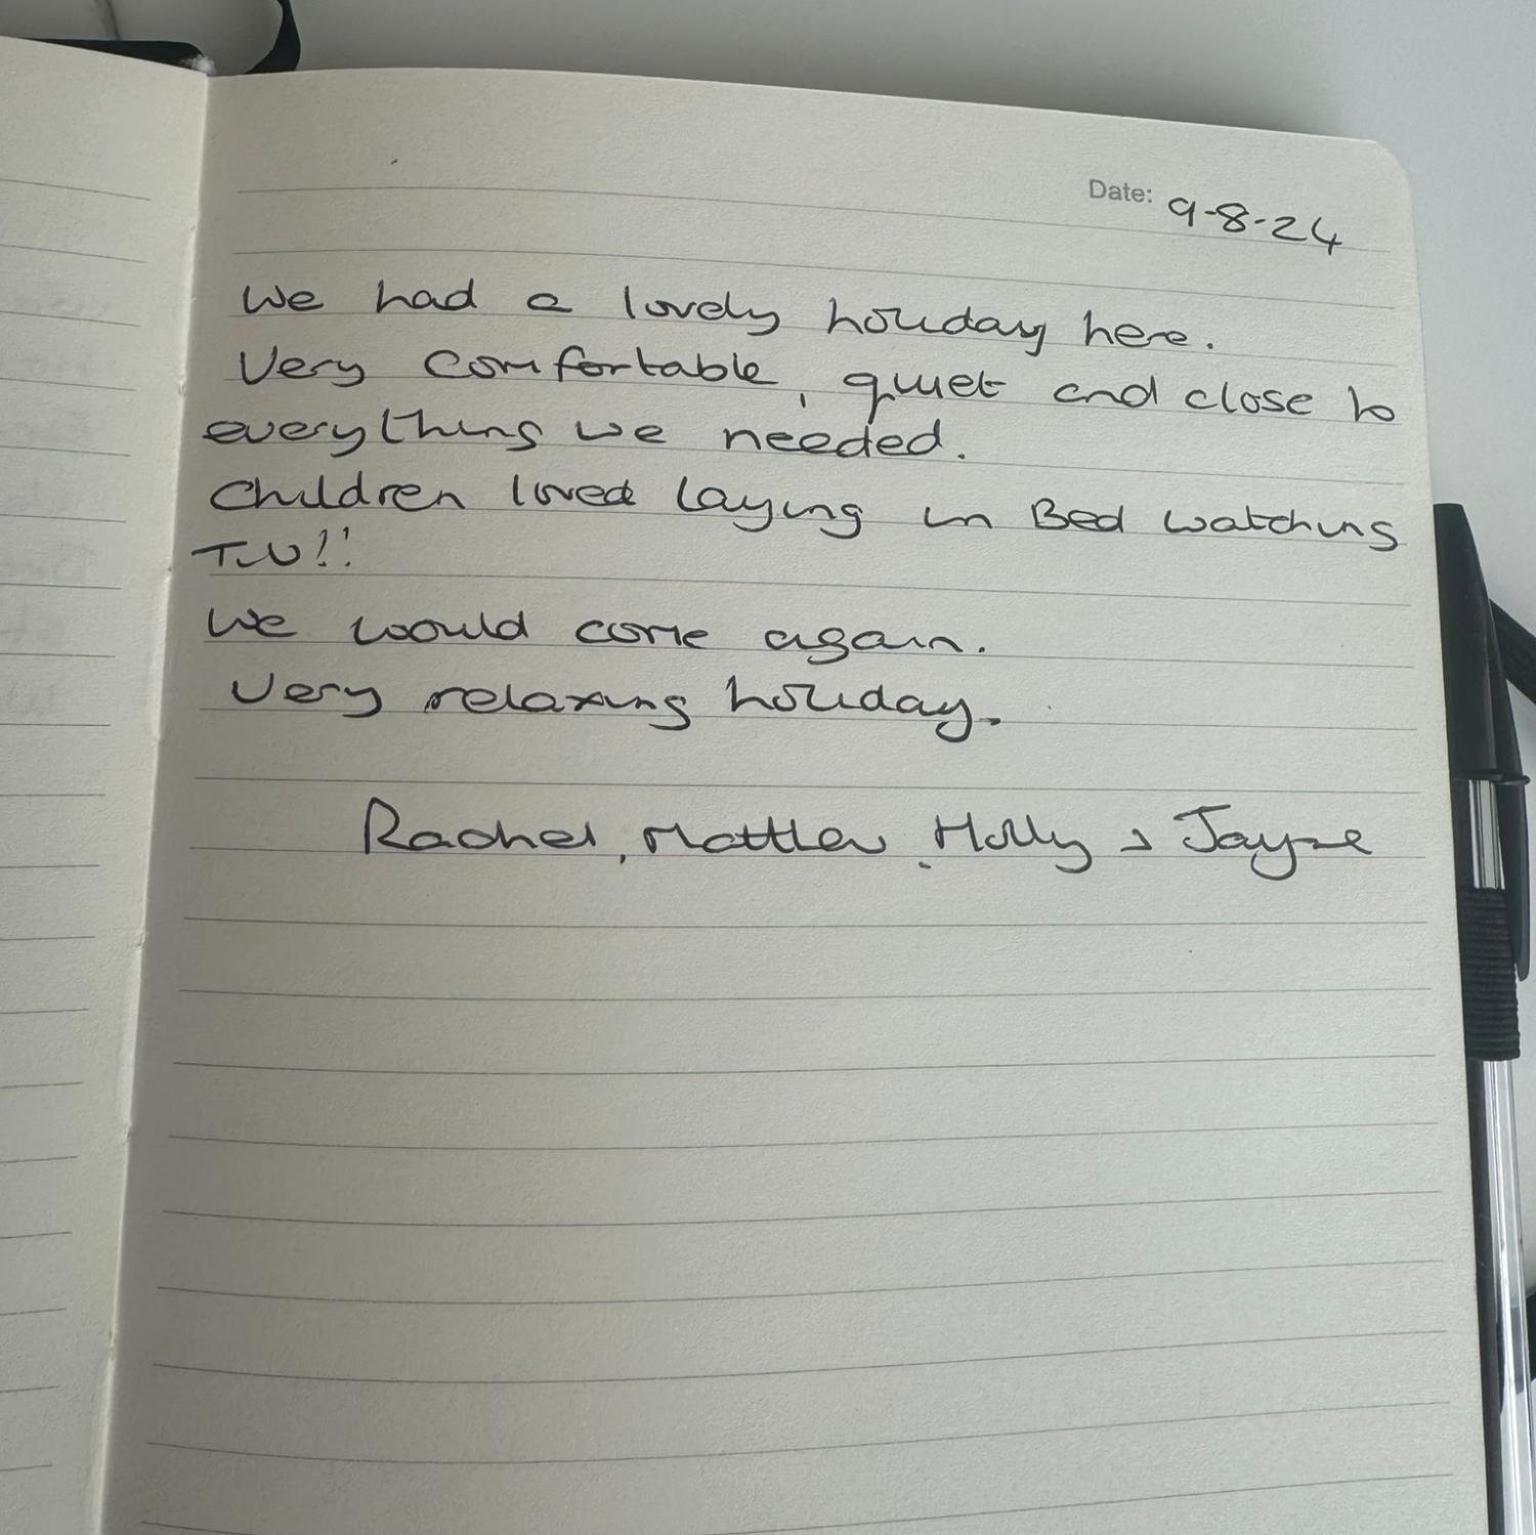 Date: 9-8-24
We had a lovely holiday here.
Very comfortable, quiet and close to
everything we needed.
Children loved laying in Bed watching
T.V!!
We would come again.
Very relaxing holiday.
Rachel, Matthew, Holly & Jayne